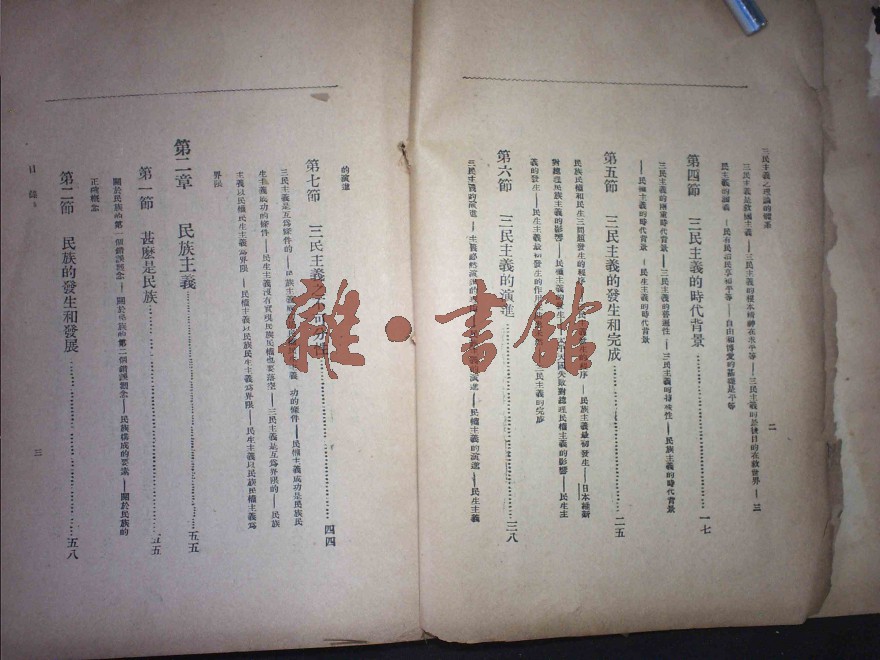 二
三民主義之理論的體系
三民主義是救國主義——三民主義的根本精神在求平等——三民主義的最後目的在救世界——三
民主義的涵義——民有民治民享和平等——自由和博愛的基礎是平等
第四節 三民主義的時代背景 一七
三民主義的兩重時代背景——三民主義的普遍性——三民主義的特殊性——民族主義的時代背景
——民權主義的時代背景——民生主義的時代背景
第五節 三民主義的發生和完成 二五
民族民權和民生三問題發生的程序——民族主義最初發生——日本維新
對總理民族主義的影響——失敗對總理民權主義的影響——民生主
義的發生——民生主義最初發生的作用——三民主義的完成
第六節 三民主義的演進 三八
三民主義的演進——民權主義的演進——民生主義
的演進
第七節 三民主義之不可分性 四四
三民主義是互為條件的——功的條件——民權主義成功是民族民
生主義成功的條件——民生主義沒有實現民族民權也要落空——三民主義是互為界限的——民族
主義以民權民生主義為界限——民權主義以民族民生主義為界限——民生主義以民族民權主義為
界限
第二章 民族主義 五五
第一節 甚麼是民族 五五
關於民族的第一個錯誤觀念——關於民族的第二個錯誤觀念——民族構成的要素——關於民族的
正確概念
第二節 民族的發生和發展 五八
目錄
三
雜·書館